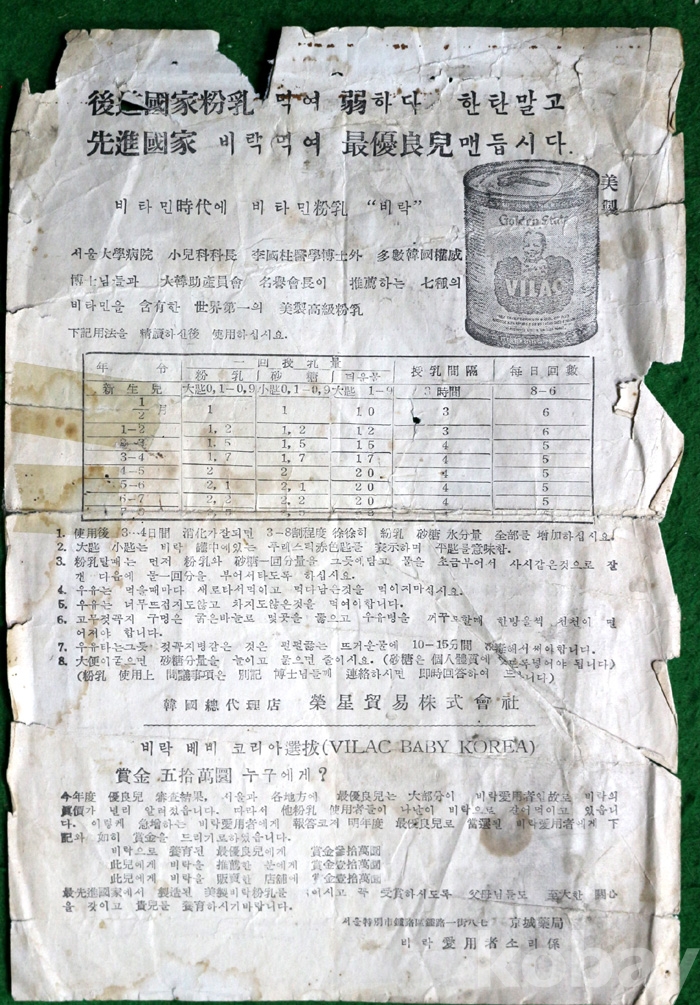 後進國家粉乳 먹여 弱하다 한탄말고
先進國家 비락먹여 最優良兒맨듭시다.
美製
Golden State
VILAC
비타민時代에 비타민粉乳 “비락”
서울大學病院 小兒科科長 李國柱醫學博士外 多數韓國權威
博士님들과 大韓助產員會 名譽會長이 推薦하는 七種의
비타민을 含有한 世界第一의 美製高級粉乳
下記用法을 精讀하신後 使用하십시요.
年 分 一回投乳量 授乳間隔 每日回數
粉乳 砂糖 더운물
新生兒 大匙0,1-0,9 小匙0,1-0,9 大匙 1-9 時間 8-6
1/2月 1 1 10 3 6
1-2 1,2 1,2 12 3 6
2-3 1,5 1,5 15 4 5
3-4 1,7 1,7 17 4 5
4-5 2 2 20 4 5
5-6 2,1 2,1 20 4 5
6-7 2,2 2,2 20 4 5
1. 使用後 3...4日間 消化가잘되면 3-8割程度 徐徐히 粉乳 砂糖 水分量 全部를 增加하십시요.
2. 大匙 小匙는 비락 罐中에있는 푸레스틱赤色匙를 表示하며 平匙를意味함.
3. 粉乳탈때는 먼저 粉乳와 砂糖一回分量을 그릇에담고 물을 초금부어서 사시같은것으로 잘
갠 다음에 물一回分을 부어서타도록 하십시요.
4. 우유는 먹을때마다 새로타서먹이고 먹다남은것을 먹이지마십시요.
5. 우유는 너무뜨겁지도않고 차지도않은것을 먹여야합니다.
6. 고무젖꼭지 구멍은 굵은바늘로 몇곳을 뚫으고 우유병을 꺼꾸로할때 한방울씩 천천이 떨
어져야 합니다.
7. 우유타는그릇 젖꼭지병같은 것은 펄펄끓는 뜨거운물에 10-15分間 해서써야합니다.
8. 大便이굳으면 砂糖分量을 늘이고 묽으면 줄이시요. (砂糖은 個人體質에 넣어야 됩니다)
(粉乳 使用上 問議事項은 別記 博士님들께 連絡하시면 即時回答하여 니다)
韓國總代理店 榮星貿易株式會社
비락 베비 코리아選拔(VILAC BABY KOREA)
賞金 五拾萬圜 누구에게?
今年度 優良兒 審査結果, 서울과 各地方에 最優良兒는 大部分이 비락愛用者임으로 비락의
眞價가 널리 알려졌습니다. 따라서 他粉乳 使用者들이 나날이 비락으로 갈어먹이고 있습니
다. 이렇게 急增하는 비락愛用者에게 報答코저 明年度 最優良兒로 當選된 비락愛用者에게 下
記와 如히 賞金을 드리기로하였습니다.
비락으로 養育된 最優良兒에게 賞金參拾萬圜
此兒에게 비락을 推薦한 분에게 賞金壹拾萬圜
此兒에게 비락을 販賣한 店舖에 賞金壹拾萬圜
最先進國家에서 製造된 美製비락粉乳를 여시고 꼭 受賞하시도록 父母님들도 至大한 關心
을 갖이고 貴兒를 養育하시기바랍니다.
서울特別市鍾路區鍾路一街八七 京城藥局
비락愛用者소리係
Kobay